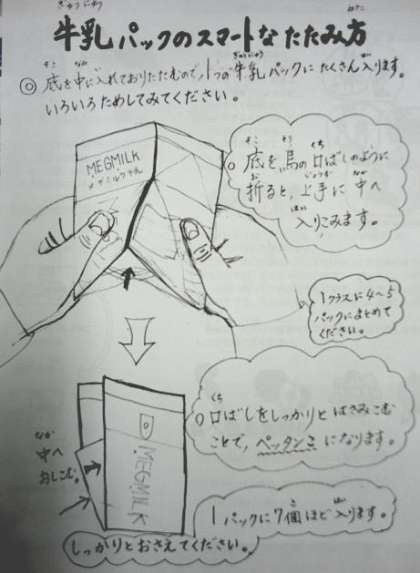 牛乳パックのスマートなたたみ方
◎底を中に入れておりたたむので、1つの牛乳パックにたくさん入ります。
いろいろためしてみてください。
○底を鳥の口ばしのように
折ると、上手に中へ
入りこみます。
MEGMILK
メグミルクさん
1クラスに4〜5
パックにまとめて
ください。
○口ばしをしっかりとはさみこむ
ことで、ペッタンコになります。
中へ
おしこむ。
MEGMILK
1パックに7個ほど入ります。
しっかりとおさえてください。